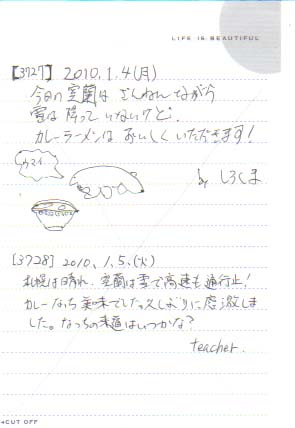 LIFE IS BEAUTIFUL
[3727] 2010.1.4(月)
今日の室蘭は ざんねんながら
雪は降っていないけど、
カレーラーメンは おいしく いただきます!
ウマイ
by しろくま
[3728] 2010.1.5.(火)
札幌は晴れ、室蘭は雪で高速も通行止!
カレーなっち美味でした。久しぶりに感激しま
した。なっちの来道はいつかな?
teacher.
CUT OFF